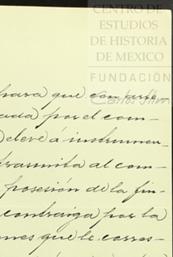 CENTRO DE
ESTUDIOS
DE HISTORIA
DE MEXICO
FUNDACIÓN
Carlos Slim
para que con
ada por el com-
eleve á instrumen-
trasmita al com-
posesión de la fin-
contraiga por la
nes que le corres-